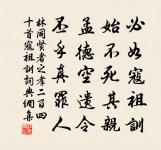 必如寇祖訓
始不死其親
孟德空遺令
丕乎真罪人
林同賢者之孝二百四
十首寇祖訓詞典網集